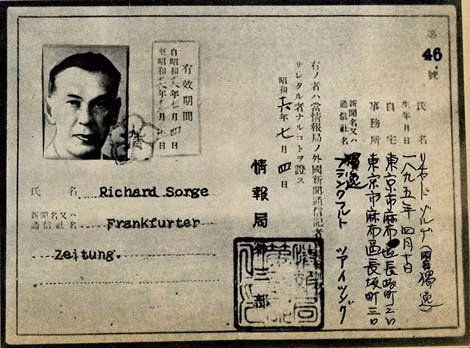 第
46
號
氏名 (國籍 獨逸)
生年月日 年四月十日
自宅 東京市麻布區長坂町三〇
事務所 東京市麻布區長坂町三〇
新聞名又ハ
通信社名 獨逸
フランクフルト ツアイツング
右ノ者ハ當情報局ノ外國新聞通信記者
サレタル者ナルコトヲ證ス
昭和十六年七月四日
情報局第三部
有效期間
自昭和十六年七月四日
至昭和
氏名 Richard Sorge
新聞名又ハ
通信社名 Frankfurter
Zeitung.